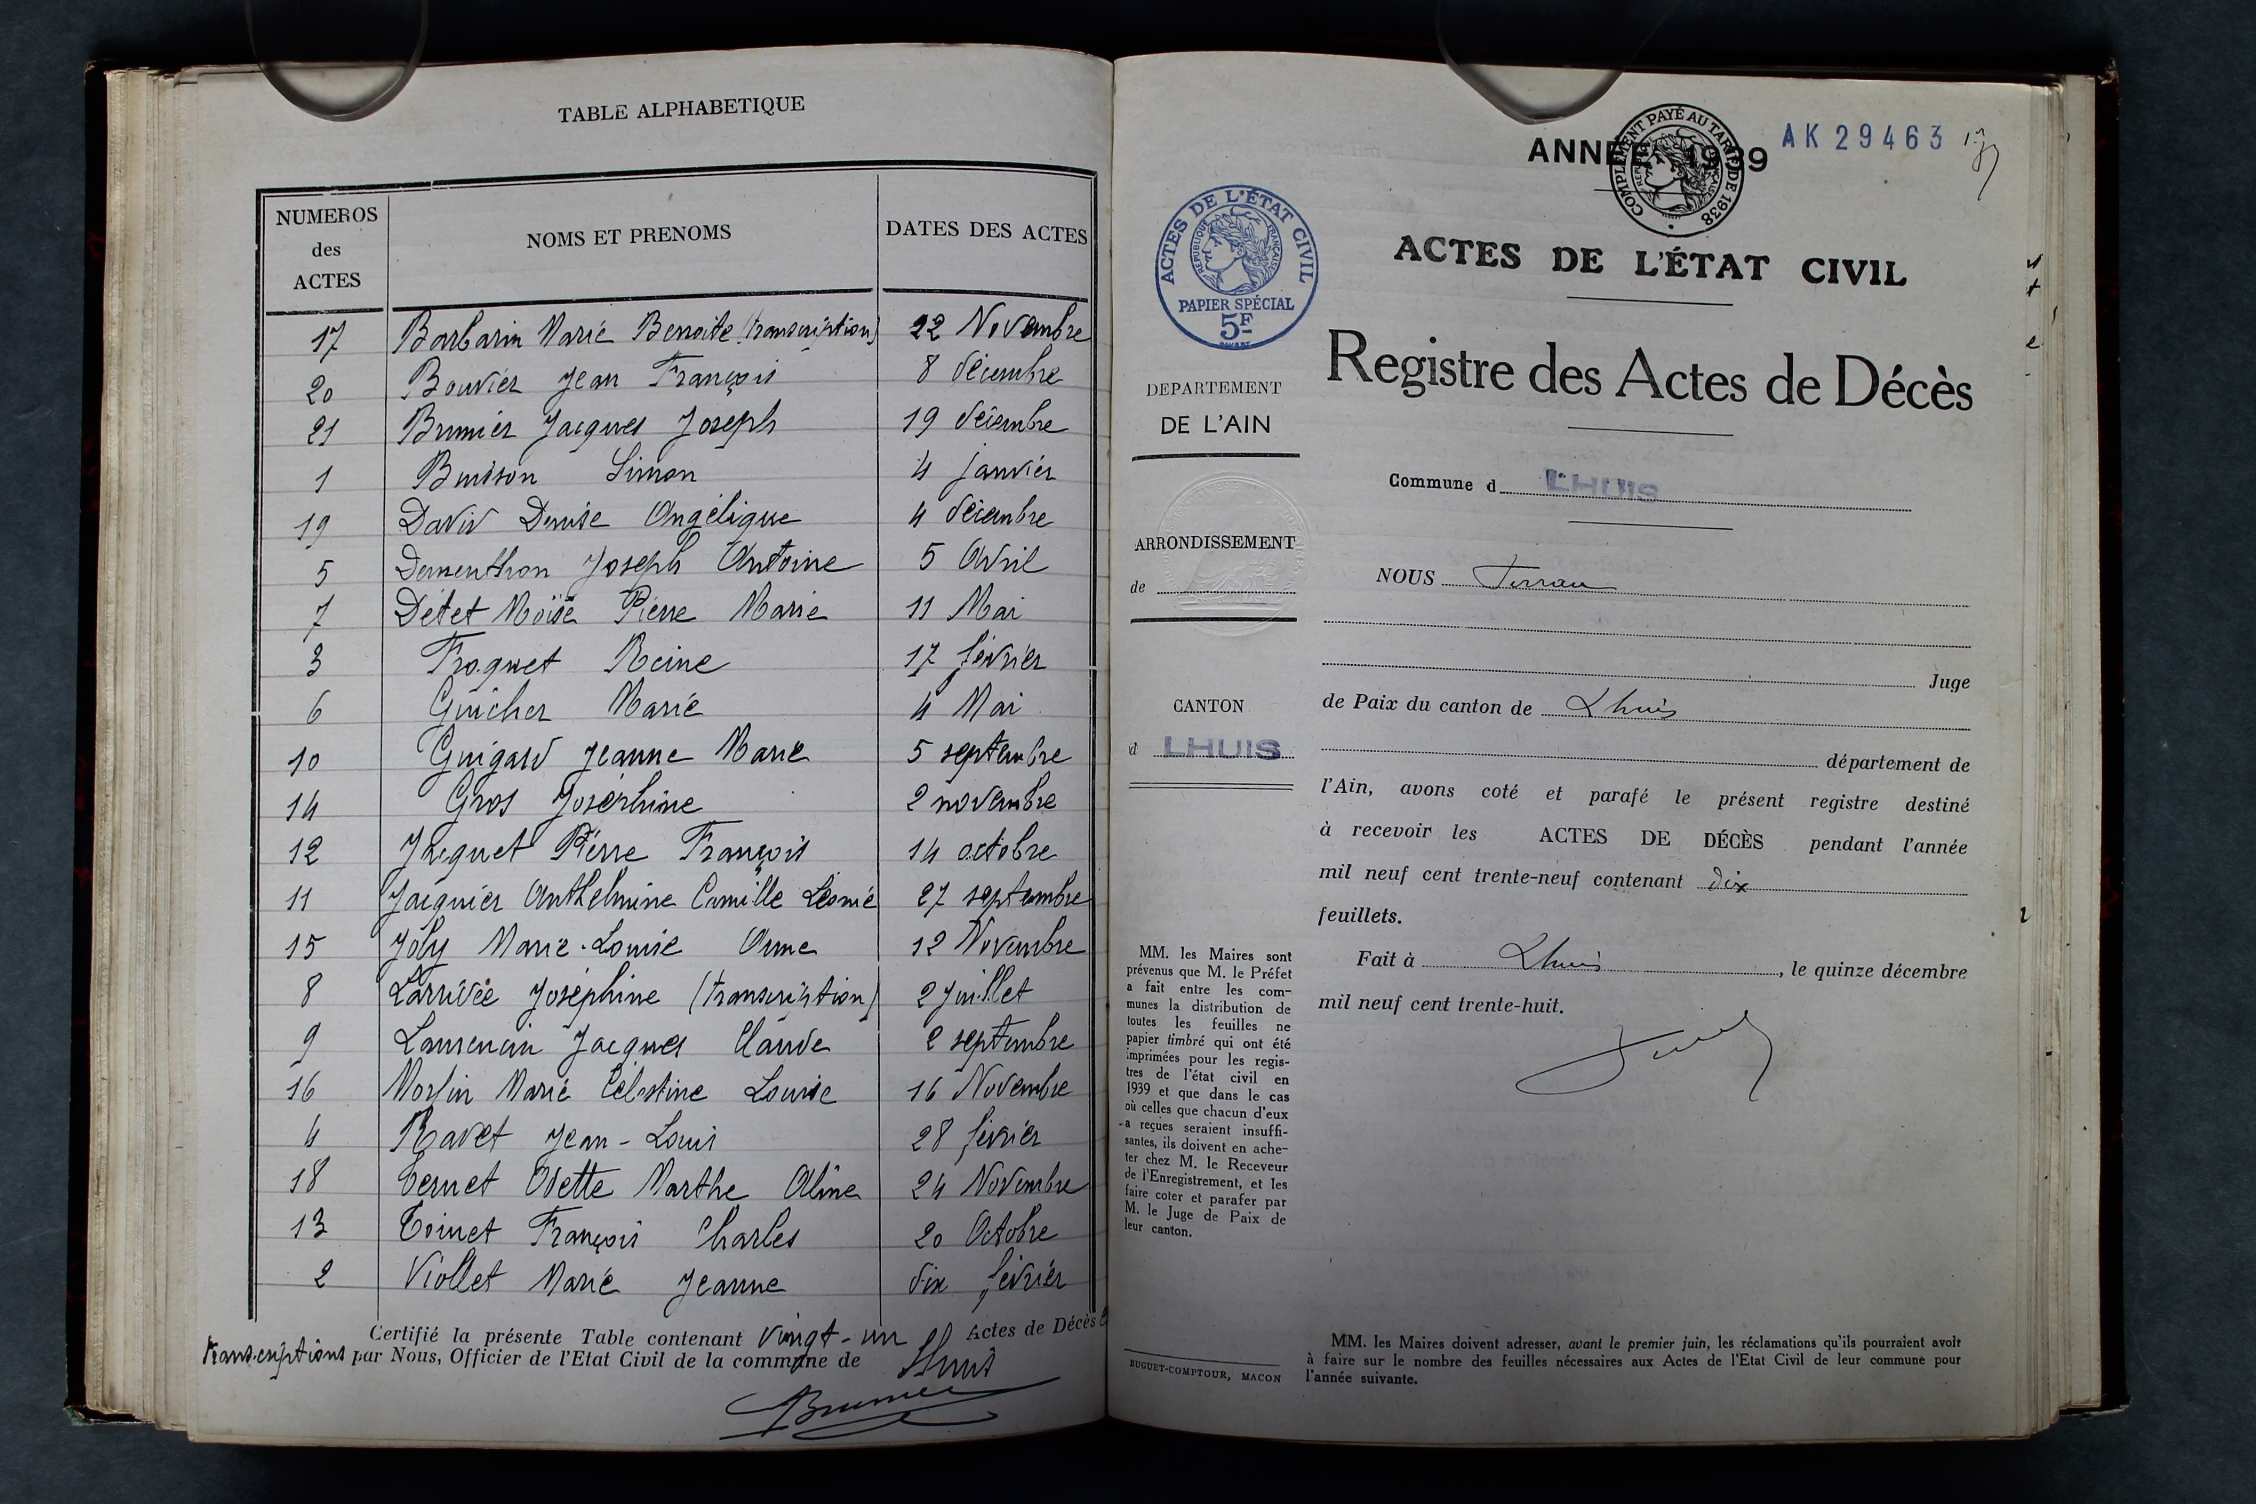 TABLE ALPHABETIQUE
NUMEROS des ACTES NOMS ET PRENOMS DATES DES ACTES
17 Barbarin Marie Benoite (transcription) 22 Novembre
20 Bouvier Jean François 8 décembre
21 Brunier Jacques Joseph 19 décembre
1 Buisson Simon 4 janvier
19 David Denise Angélique 4 décembre
5 Dementhon Joseph Antoine 5 Avril
7 Détet Moïse Pierre Marie 11 Mai
3 Froquet Reine 17 février
6 Guicher Marie 4 Mai
10 Guigard Jeanne Marie 5 septembre
14 Gros Joséphine 2 novembre
12 Jacquet Pierre François 14 octobre
11 Jacquier Anthelmine Camille Léonie 27 septembre
15 Joly Marie-Louise Anne 12 Novembre
8 Larrivée Joséphine (transcription) 2 juillet
9 Laurencin Jacques Claude 2 septembre
16 Morlin Marie Célestine Louise 16 Novembre
4 Ravet Jean-Louis 28 février
18 Ternet Odette Marthe Aline 24 Novembre
13 Toinet François Charles 20 Octobre
2 Viollet Marie Jeanne dix février
Certifié la présente Table contenant vingt-un Actes de Décès
transcriptions par Nous, Officier de l'Etat Civil de la commune de Lhuis
Brunier
ANNEE 1939
COMPLEMENT PAYÉ AU TARIF DE 1938
AK 29463
ACTES DE L'ÉTAT CIVIL
RÉPUBLIQUE FRANÇAISE
PAPIER SPÉCIAL
5F
DEPARTEMENT
DE L'AIN
ARRONDISSEMENT
de
CANTON
d LHUIS
MM. les Maires sont
prévenus que M. le Préfet
a fait entre les com-
munes la distribution de
toutes les feuilles ne
papier timbré qui ont été
imprimées pour les regis-
tres de l'état civil en
1939 et que dans le cas
où celles que chacun d'eux
a reçues seraient insuffi-
santes, ils doivent en ache-
ter chez M. le Receveur
de l'Enregistrement, et les
faire coter et parafer par
M. le Juge de Paix de
leur canton.
BUGUET-COMPTOUR, MACON
ACTES DE L'ÉTAT CIVIL
Registre des Actes de Décès
Commune d LHUIS
NOUS
Juge
de Paix du canton de Lhuis
département de
l'Ain, avons coté et parafé le présent registre destiné
à recevoir les ACTES DE DÉCÈS pendant l'année
mil neuf cent trente-neuf contenant dix
feuillets.
Fait à Lhuis, le quinze décembre
mil neuf cent trente-huit.
MM. les Maires doivent adresser, avant le premier juin, les réclamations qu'ils pourraient avoir
à faire sur le nombre des feuilles nécessaires aux Actes de l'Etat Civil de leur commune pour
l'année suivante.